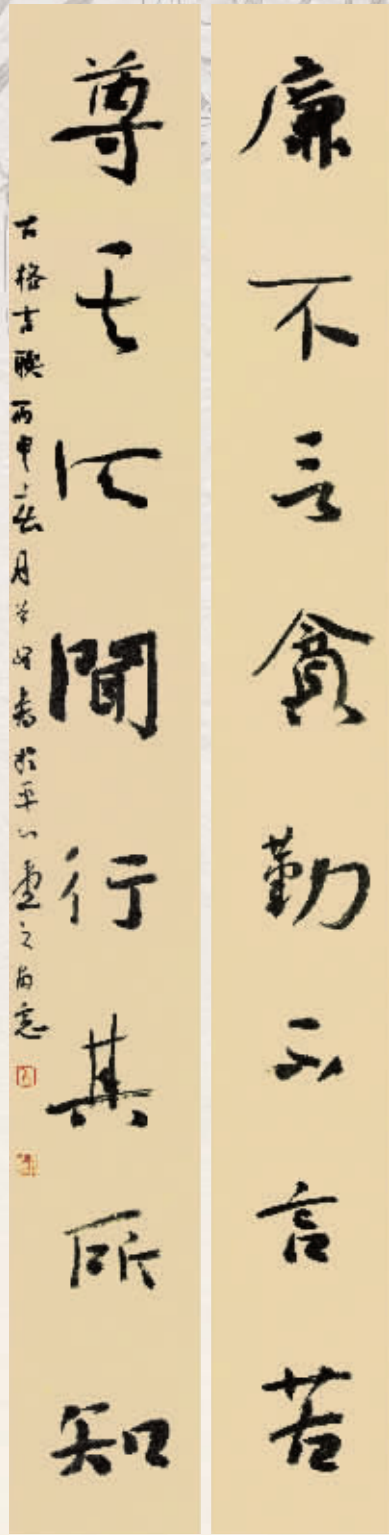 廉不言貧勤不言苦
尊其所聞行其所知
古格言聯丙申春月書於平心之南窗